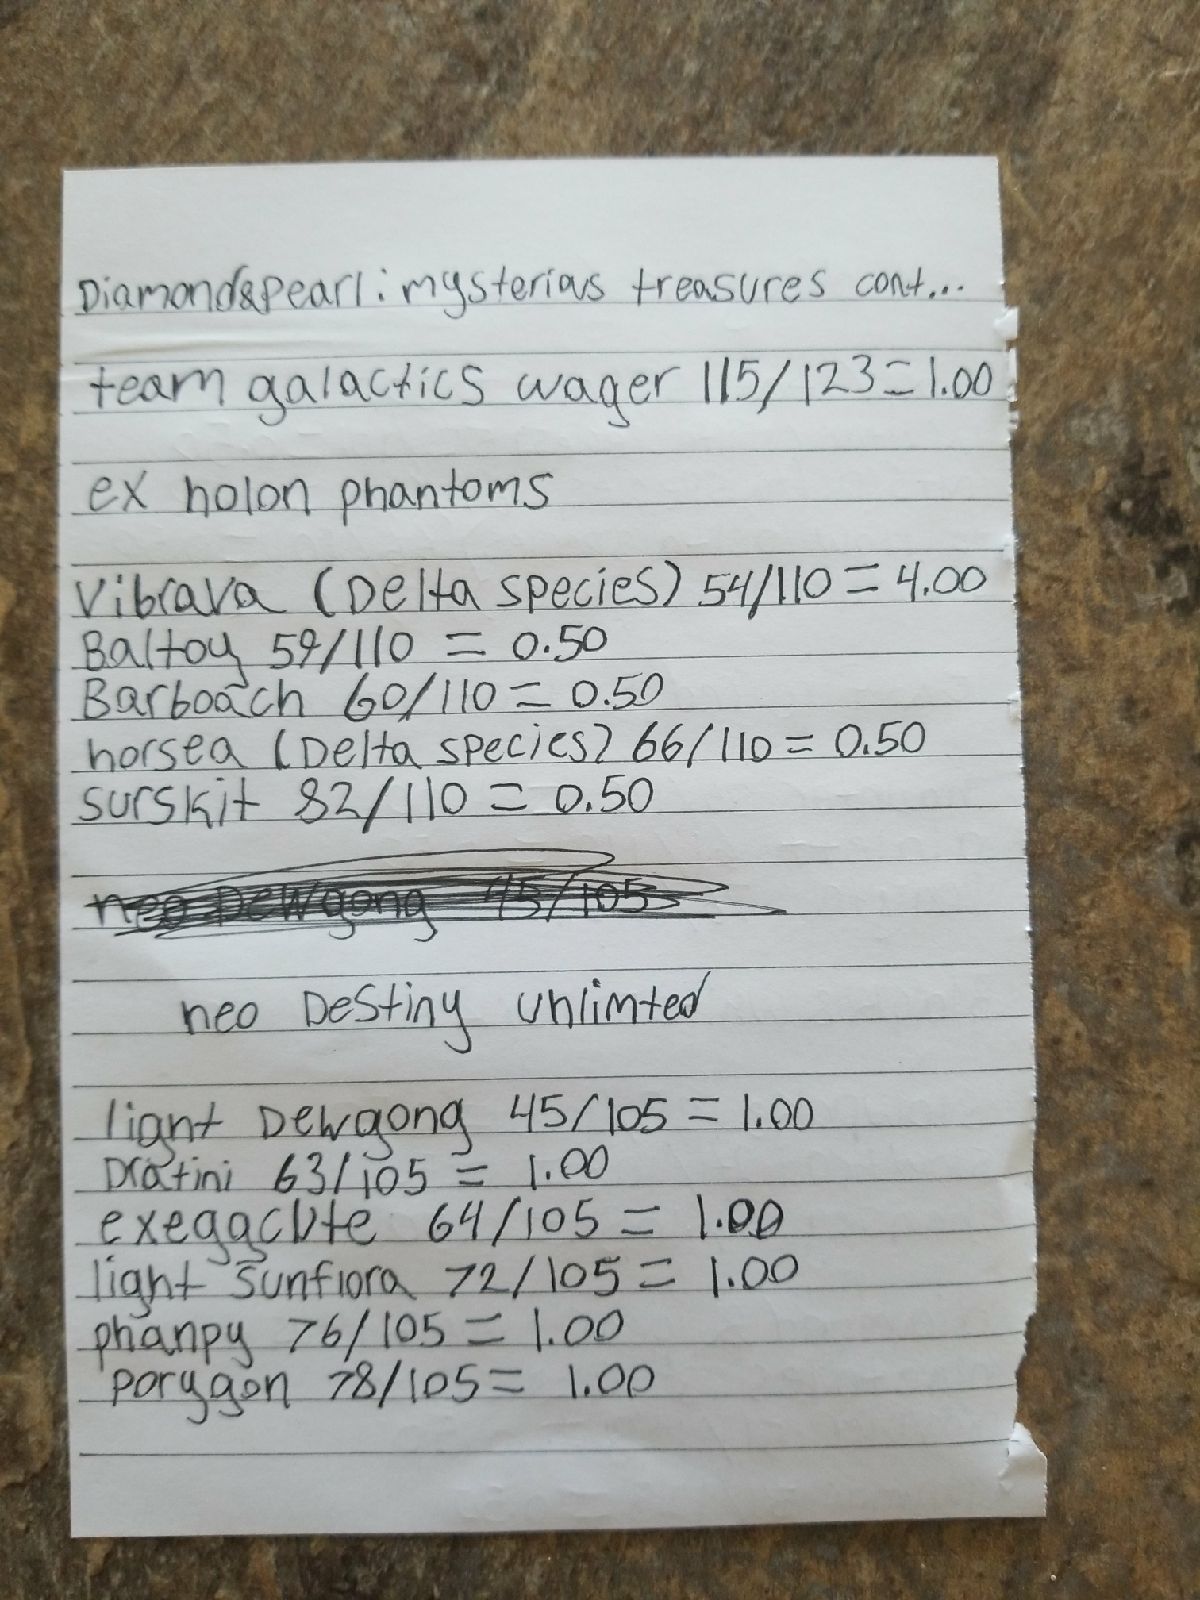 Diamond&pearl: mysterius treasures cont...
team galactics wager 115/123=1.00
ex holon phantoms
Vibrava (Delta species) 54/110 = 4.00
Baltoy 59/110 = 0.50
Barboach 60/110 = 0.50
horsea (Delta species) 66/110 = 0.50
surskit 82/110 = 0.50
neo Dewgong 45/105
neo Destiny unlimted
light Dewgong 45/105 = 1.00
Dratini 63/105 = 1.00
exeggcute 64/105 = 1.00
light sunflora 72/105 = 1.00
phanpy 76/105 = 1.00
porygon 78/105 = 1.00